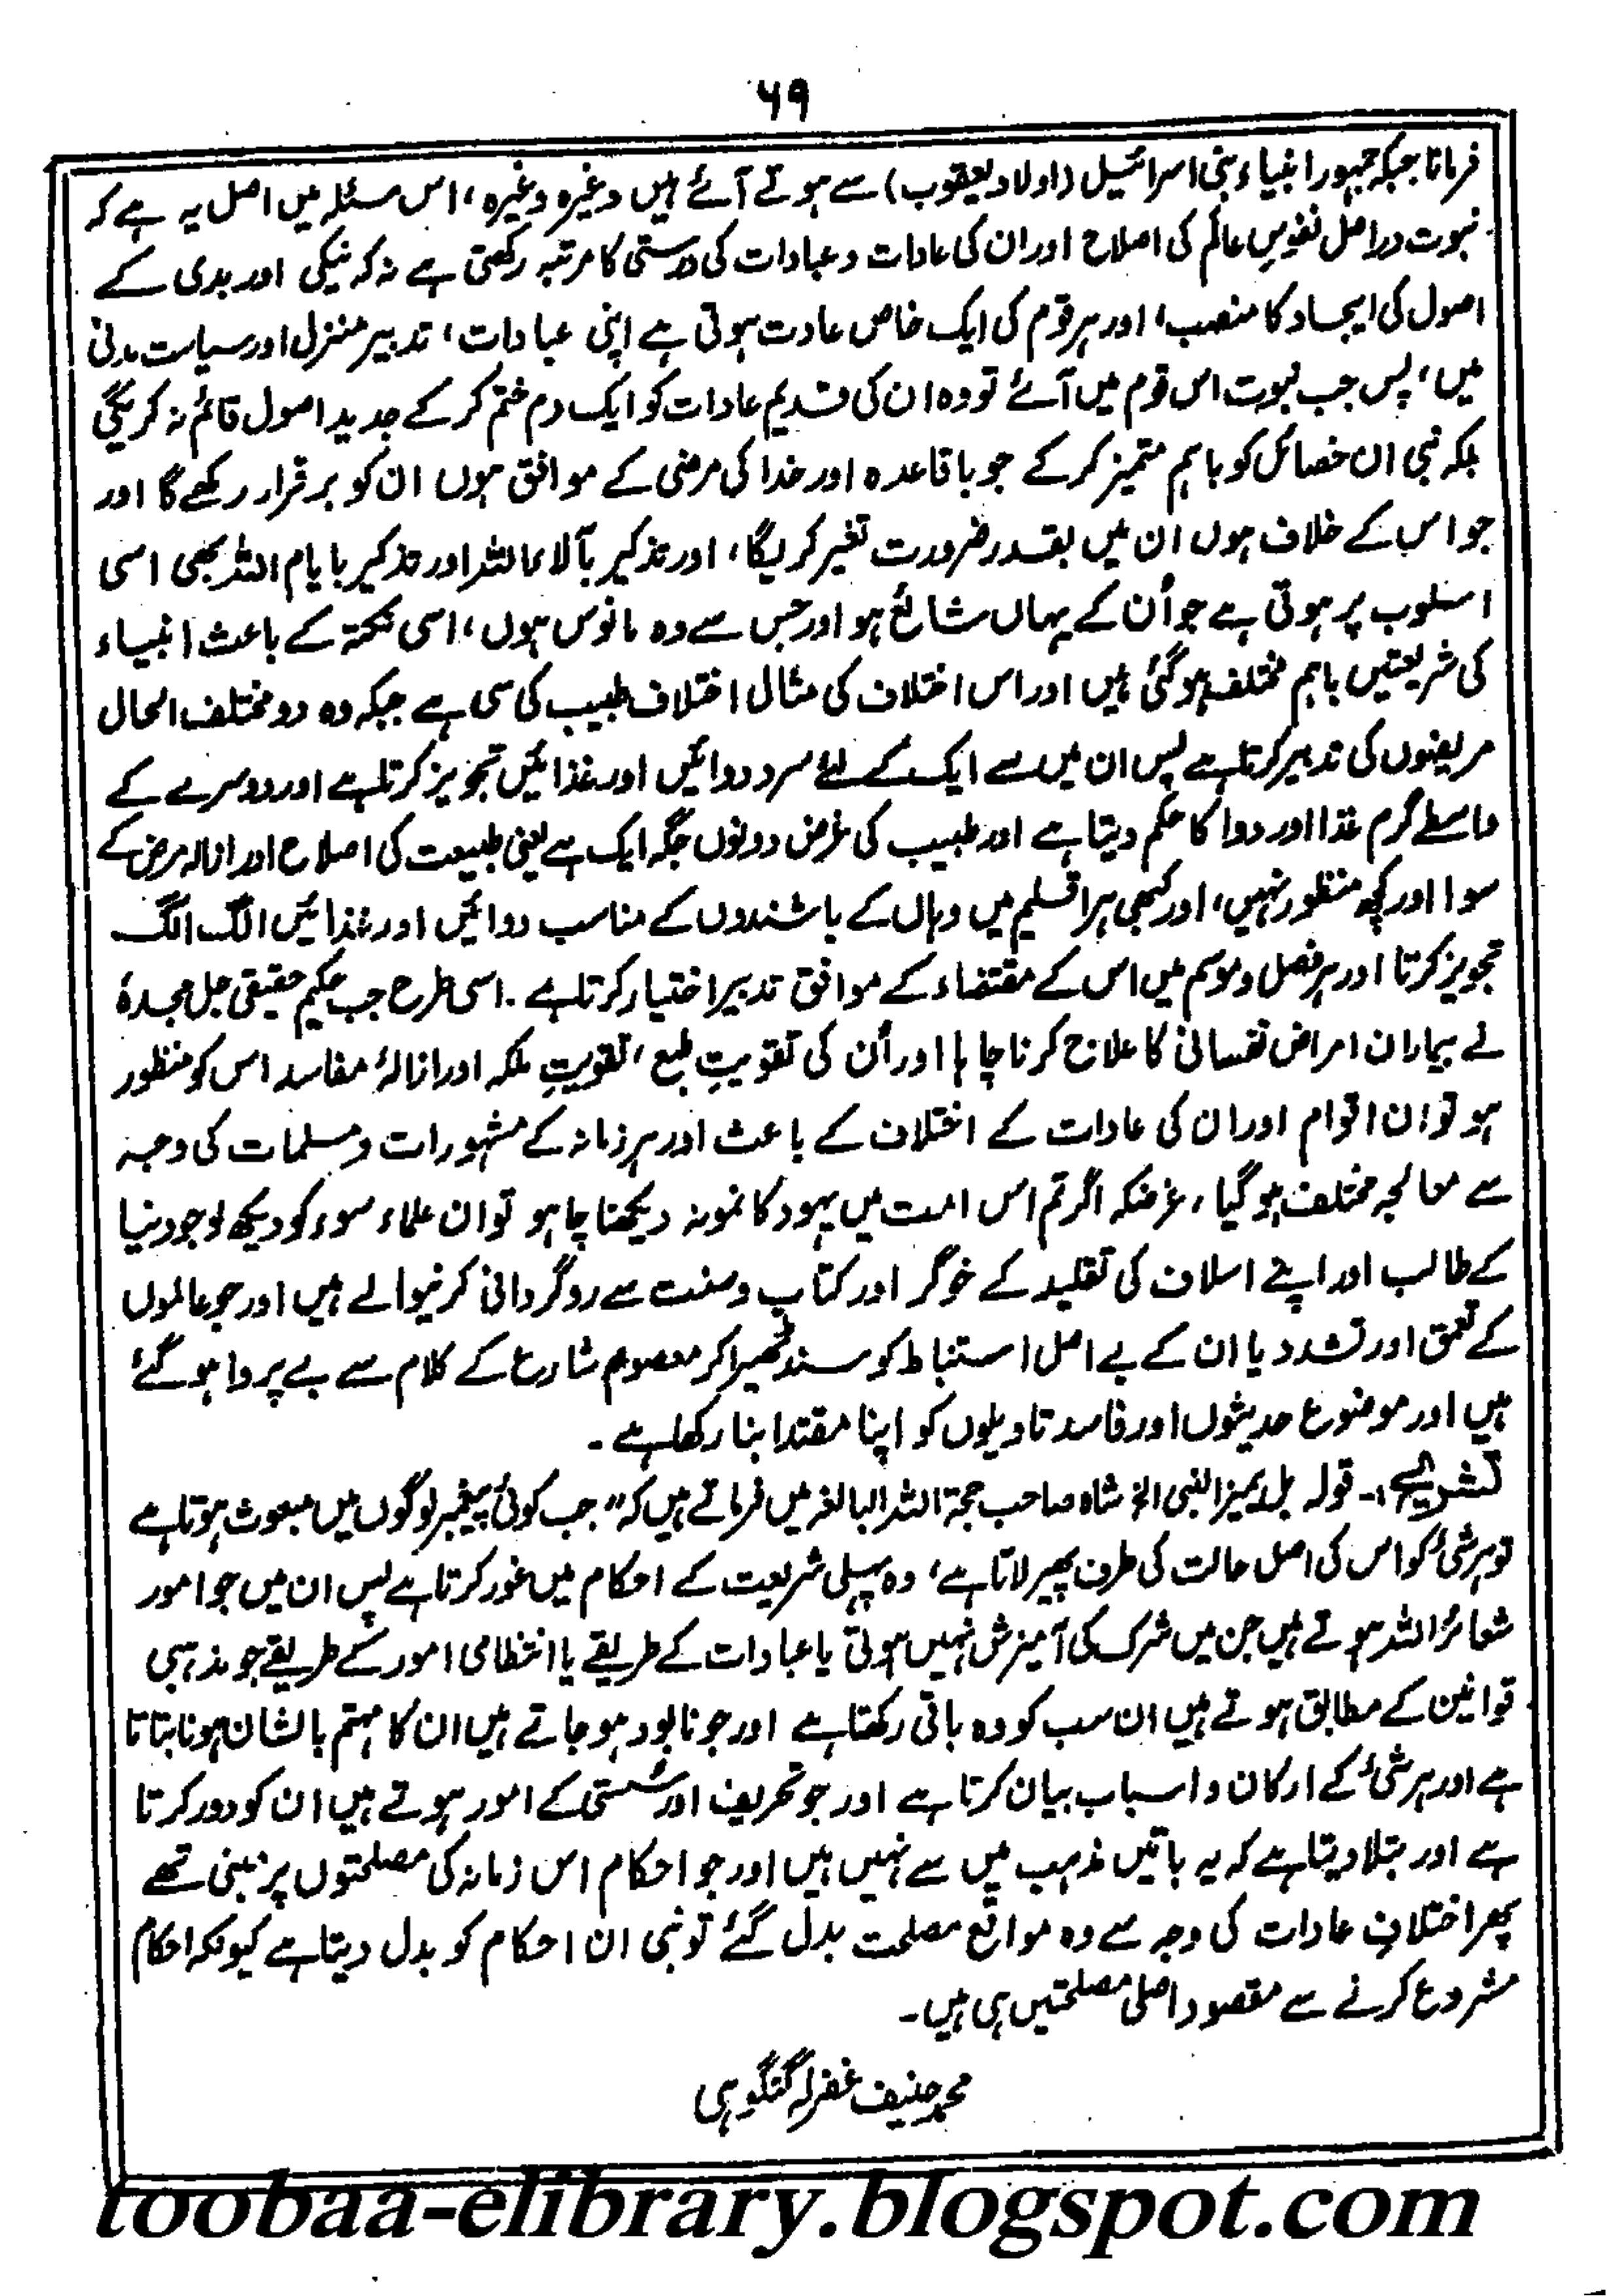 ۶۹
فرمانا جبکہ جمہور انبیاء بنی اسرائیل (اولاد یعقوب) سے ہوتے آئے ہیں وغیرہ وغیرہ، اس مسئلہ میں اصل یہ ہے کہ
نبوت دراصل نفوسِ عالم کی اصلاح اور ان کی عادات و عبادات کی درستی کا مرتبہ رکھتی ہے نہ کہ نیکی اور بدی کے
اصول کی ایجاد کا منصب، اور ہر قوم کی ایک خاص عادت ہوتی ہے اپنی عبادات، تدبیر منزل اور سیاست مدنی
میں، پس جب نبوت اس قوم میں آئے تو وہ ان کی قدیم عادات کو ایک دم ختم کر کے جدید اصول قائم نہ کریگی
بلکہ نبی ان خصائل کو باہم متمیز کر کے جو باقاعدہ اور خدا کی مرضی کے موافق ہوں ان کو برقرار رکھے گا اور
جو اس کے خلاف ہوں اُن میں بقدر ضرورت تغیر کریگا، اور تذکیر بآلاء اللہ اور تذکیر بایام اللہ بھی اسی
اسلوب پر ہوتی ہے جو اُن کے یہاں شائع ہو اور جس سے وہ مانوس ہوں، اسی نکتہ کے باعث انبیاء
کی شریعتیں باہم مختلف ہوگئی ہیں اور اس اختلاف کی مثال اختلاف طبیب کی سی ہے جبکہ وہ دو مختلف الحال
مریضوں کی تدبیر کرتا ہے پس ان میں سے ایک کے لئے سرد دوائیں اور غذائیں تجویز کرتا ہے اور دوسرے کے
واسطے گرم غذا اور دوا کا حکم دیتا ہے اور طبیب کی غرض دونوں جگہ ایک ہے یعنی طبیعت کی اصلاح اور ازالہ مرض کے
سوا اور کچھ منظور نہیں، اور کبھی ہر اقلیم میں وہاں کے باشندوں کے مناسب دوائیں اور غذائیں الگ الگ
تجویز کرتا اور ہر فصل و موسم میں اس کے مقتضاء کے موافق تدبیر اختیار کرتا ہے۔ اسی طرح جب حکیم حقیقی جل مجدہٗ
نے بیماران امراض نفسانی کا علاج کرنا چاہا اور اُن کی تقویتِ طبع، تقویتِ ملکہ اور ازالۂ مفاسد اس کو منظور
ہو تو ان اقوام اور ان کی عادات کے اختلاف کے باعث اور ہر زمانہ کے مشہورات و مسلمات کی وجہ
سے معالجہ مختلف ہو گیا، غرضکہ اگر تم اس امت میں یہود کا نمونہ دیکھنا چاہو تو ان علماء سوء کو دیکھ لو جو دنیا
کے طالب اور اپنے اسلاف کی تقلید کے خوگر اور کتاب و سنت سے روگردانی کرنیوالے ہیں اور جو عالموں
کے تعمق اور تشدد یا ان کے بے اصل استنباط کو سند ٹھیرا کر معصوم شارع کے کلام سے بے پروا ہو گئے
ہیں اور موضوع حدیثوں اور فاسد تاویلوں کو اپنا مقتدا بنا رکھا ہے۔
تشریح:۔ قولہ بل یمیز النبی الخ شاہ صاحب حجۃ اللہ البالغہ میں فرماتے ہیں کہ "جب کوئی پیغمبر لوگوں میں مبعوث ہوتا ہے
تو ہر شئ کو اس کی اصل حالت کی طرف پھیر لاتا ہے، وہ پہلی شریعت کے احکام میں غور کرتا ہے پس ان میں جو امور
شعائر اللہ ہوتے ہیں جن میں شرک کی آمیزش نہیں ہوتی یا عبادات کے طریقے یا انتظامی امور کے طریقے جو مذہبی
قوانین کے مطابق ہوتے ہیں ان سب کو وہ باقی رکھتا ہے اور جو نابود ہو جاتے ہیں ان کا مہتم بالشان ہونا بتاتا
ہے اور ہر شئ کے ارکان و اسباب بیان کرتا ہے اور جو تحریف اور سُستی کے امور ہوتے ہیں ان کو دور کرتا
ہے اور بتلا دیتا ہے کہ یہ باتیں مذہب میں سے نہیں ہیں اور جو احکام اس زمانہ کی مصلحتوں پر مبنی تھے
پھر اختلافِ عادات کی وجہ سے وہ مواقع مصلحت بدل گئے تو نبی ان احکام کو بدل دیتا ہے کیونکہ احکام
مشروع کرنے سے مقصود اصلی مصلحتیں ہی ہیں۔
محمد حنیف غفرلہ گنگوہی
toobaa-elibrary.blogspot.com